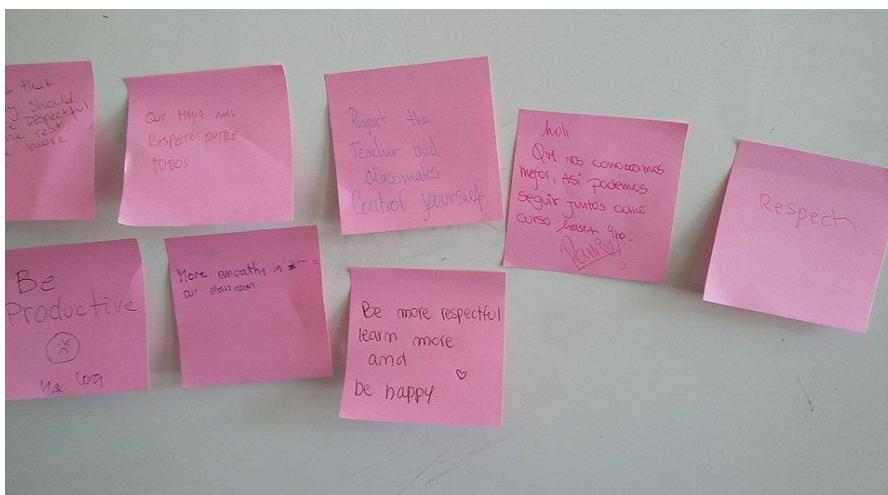 that
should
respectful
rest
more
QUE HAYA MAS
RESPETO ENTRE
TODOS
Respect the
Teacher and
classmates
Control yourself
holi
Que nos conozcamos
mejor, Asi podemos
seguir juntos como
curso hasta 4to.
Respect
Be
Productive
More empathy in
our classroom
Be more respectful
learn more
and
be happy.